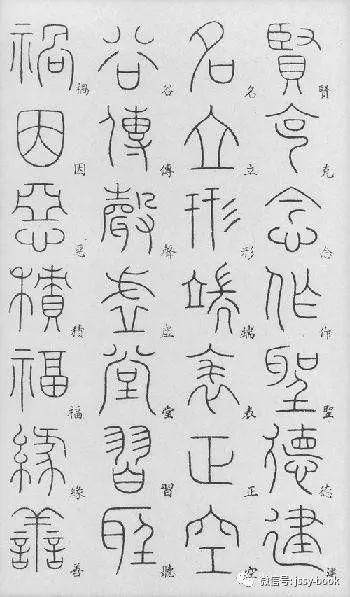 賢克念作聖德建
名立形端表正空
谷傳聲虛堂習聽
禍因惡積福緣善
微信号: jssy-book